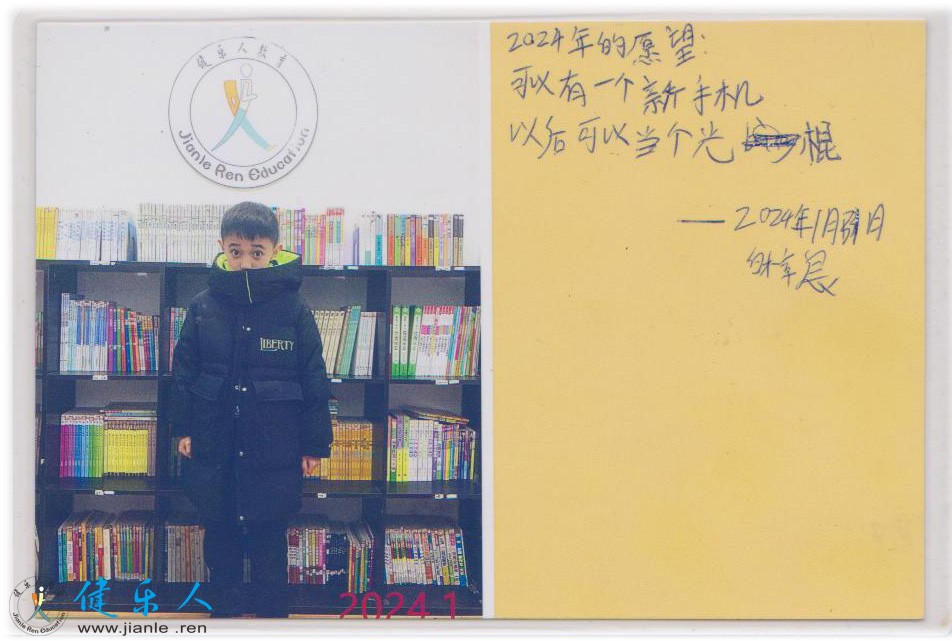 健乐人教育
Jianle Ren Education
LIBERTY
2024.1
2024年的愿望:
可以有一个新手机
以后可以当个光棍
—2024年1月31日
健乐人
www.jianle.ren
健乐人
Jianle Ren Education